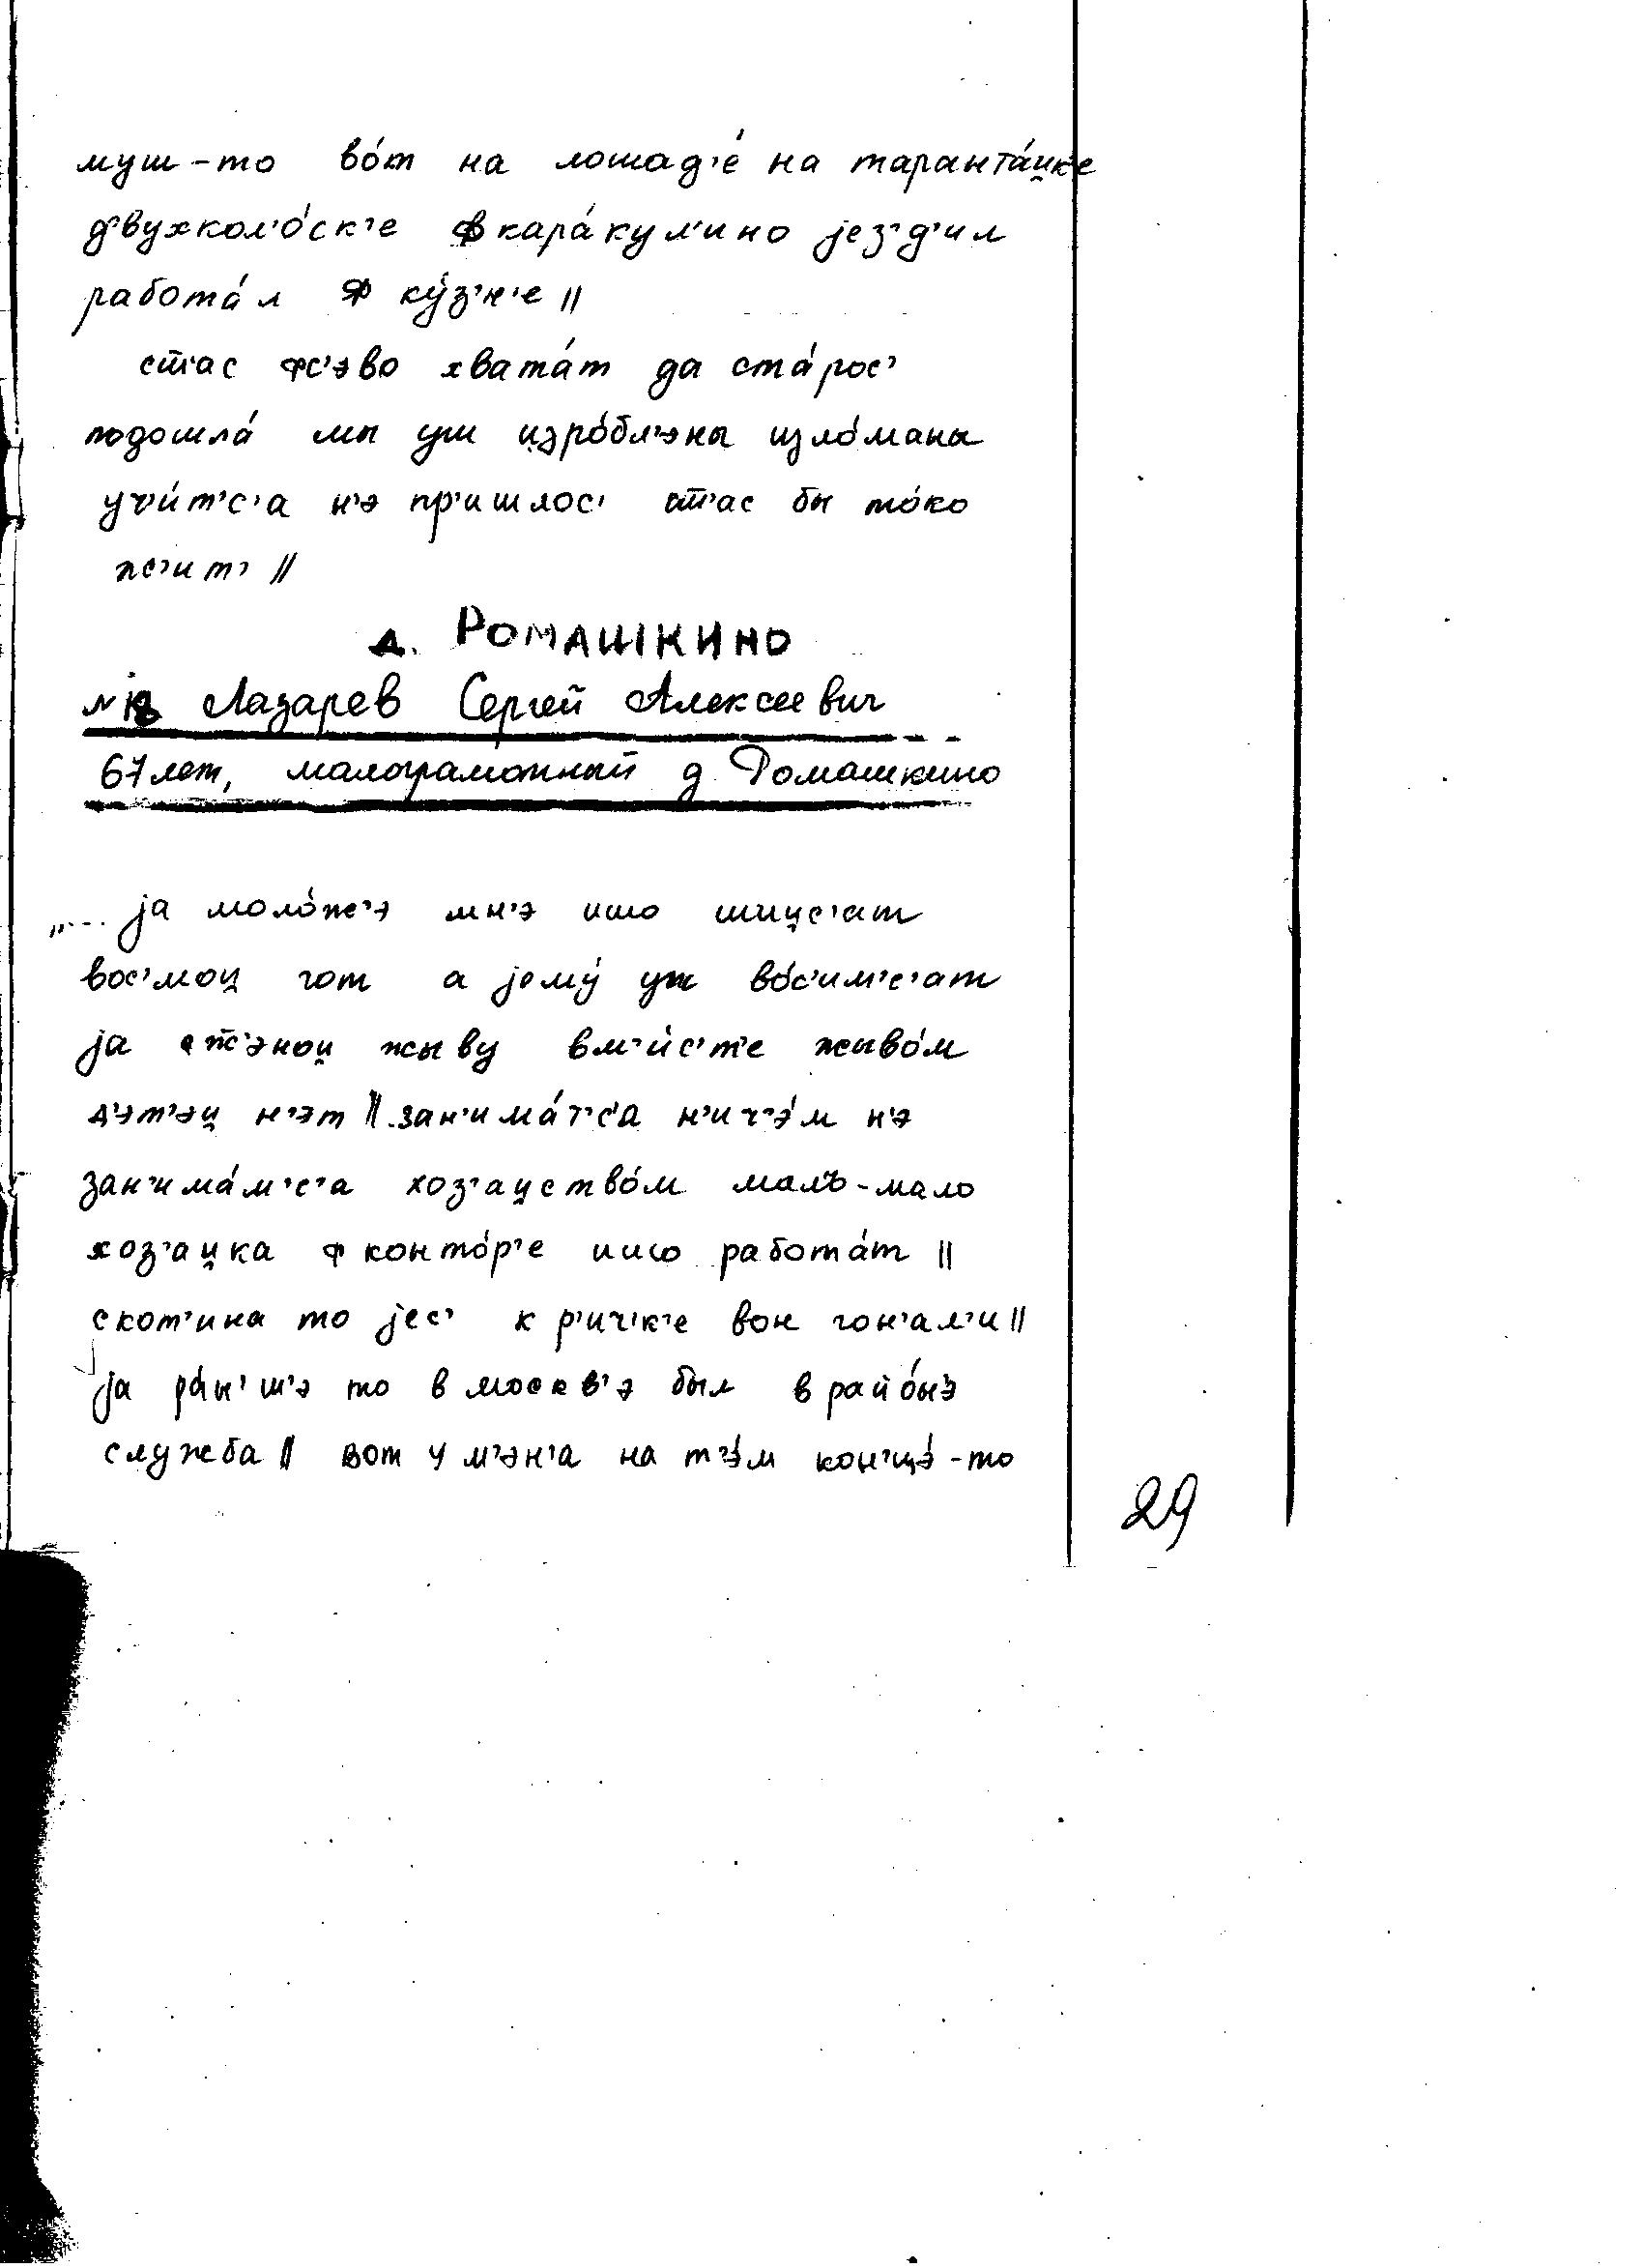 муш-то во́т на лошад'е́ на таранта́и̯к'е
двухкол'о́ск'е ф кара́кул'ино jез'д'ил
работа́л ф ку́з'н'е ||
с'т'ас фс'эво хвата́т да ста́рос'
подошла́ мы уш изро́бл'эны изло́маны
уч'и́т'с'а н'э пр'ишлос' с'т'ас бы то́ко
ж'ит' ||
д. РОМАШКИНО
Лазарев Сергей Алексеевич
67 лет, малограмотный д. Ромашкино
„... jа моло́ж'э мн'э ишо шиис'ат
вос'мои̯ гот а jему́ уж во́с'им'с'ат
jа с ж'энои̯ жыву вм'и́с'т'е жыво́м
д'эт'эи̯ н'эт || зан'има́т'с'а н'ич'э́м н'э
зан'има́м'с'а хоз'аи̯ство́м малъ-мало
хоз'аи̯ка ф конто́р'е ишо работа́т ||
скот'ина то jес' к р'ич'к'е вон гон'ал'и ||
jа ра́н'ш'э то в москв'э был в райо́нъ
служба || вот у м'эн'а на т'э́м кон'цэ́-то
29